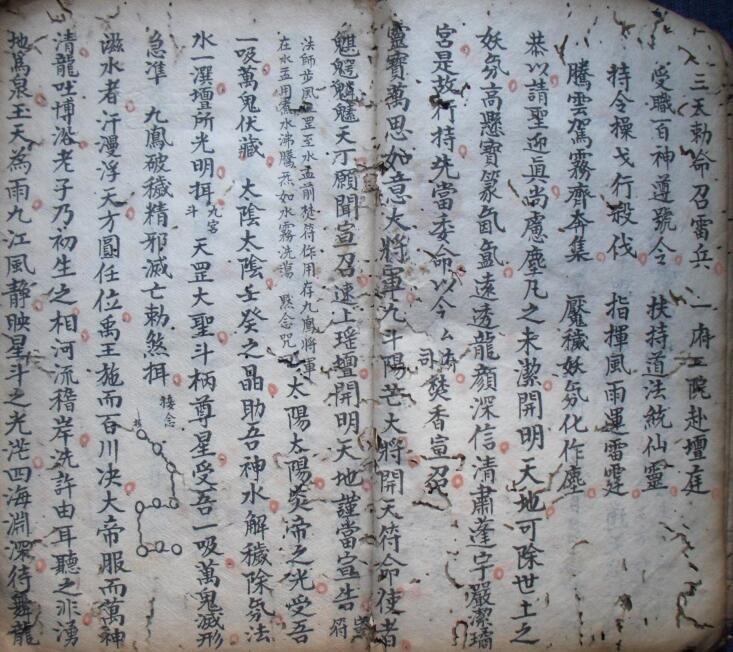 三天勅命召雷兵　一府二院赴壇庭
受職百神遵號令　扶持道法統仙靈
持令操戈行殺伐　指揮風雨運雷霆
騰雲駕霧齊奔集　魘穢妖氛化作塵
恭以請聖迎眞尚慮塵凡之未潔開明天地可除世土之
妖氛高懸寳篆氤氳遠透龍顔深信清肅蓬宇嚴潔璚
宮是故行持先當委命以今 公府司 焚香宣召
靈寳萬思如意大將軍九斗陽芒大將開天符命使者
天丁願聞宣召速上瑶壇開明天地謹當宣告 符
法師步風罡至水盂前 符作用存九鳳將軍
在水盂用 水沸騰炁如水霧洗蕩 黙念咒 太陽太陽炎帝之光受吾
一吸萬鬼伏藏　太陰太陰壬癸之晶助吾神水解穢除氛法
水一潠壇所光明挕 九宮斗 天罡大聖斗柄尊星受吾一吸萬鬼滅形
急準　九鳳破穢精邪滅亡勅煞挕 接念
滋水者汗漫浮天方圓任位禹王施而百川决大帝服而萬神
清龍吐博浴老子乃初生之相河流稽岸洗許由耳聽之非湧
地爲泉玉天為雨九江風静映星斗之光茫四海淵深待 龍